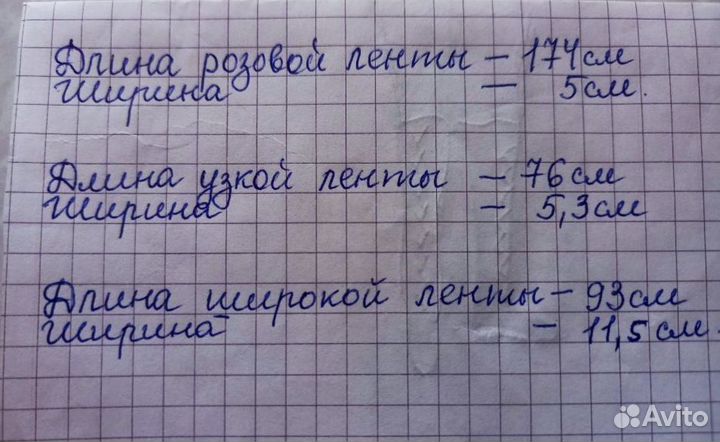 Длина розовой ленты – 174 см
Ширина – 5 см.
Длина узкой ленты – 76 см
Ширина – 5,3 см
Длина широкой ленты – 93 см
Ширина – 11,5 см.
Avito